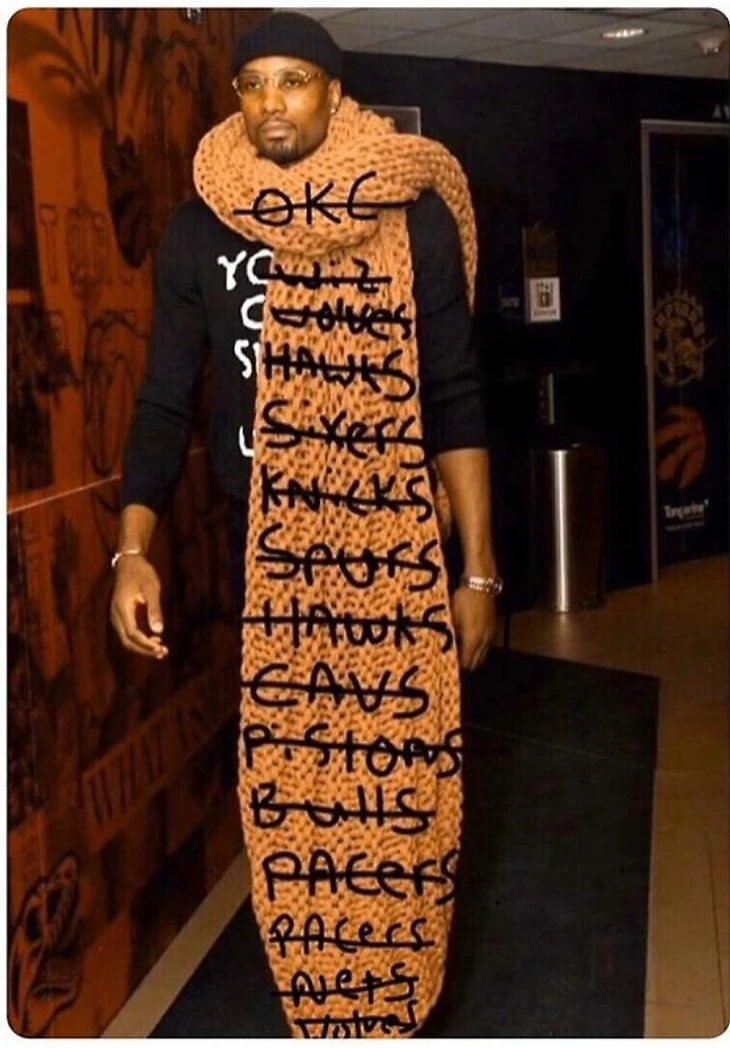 OKC
Wiz
Wolves
HAWKS
Sixers
KNicKS
SPurs
HAWKS
CAVS
PiSTONS
Bulls
PACers
PACers
NeTS
Wolves
YO
Tangerine